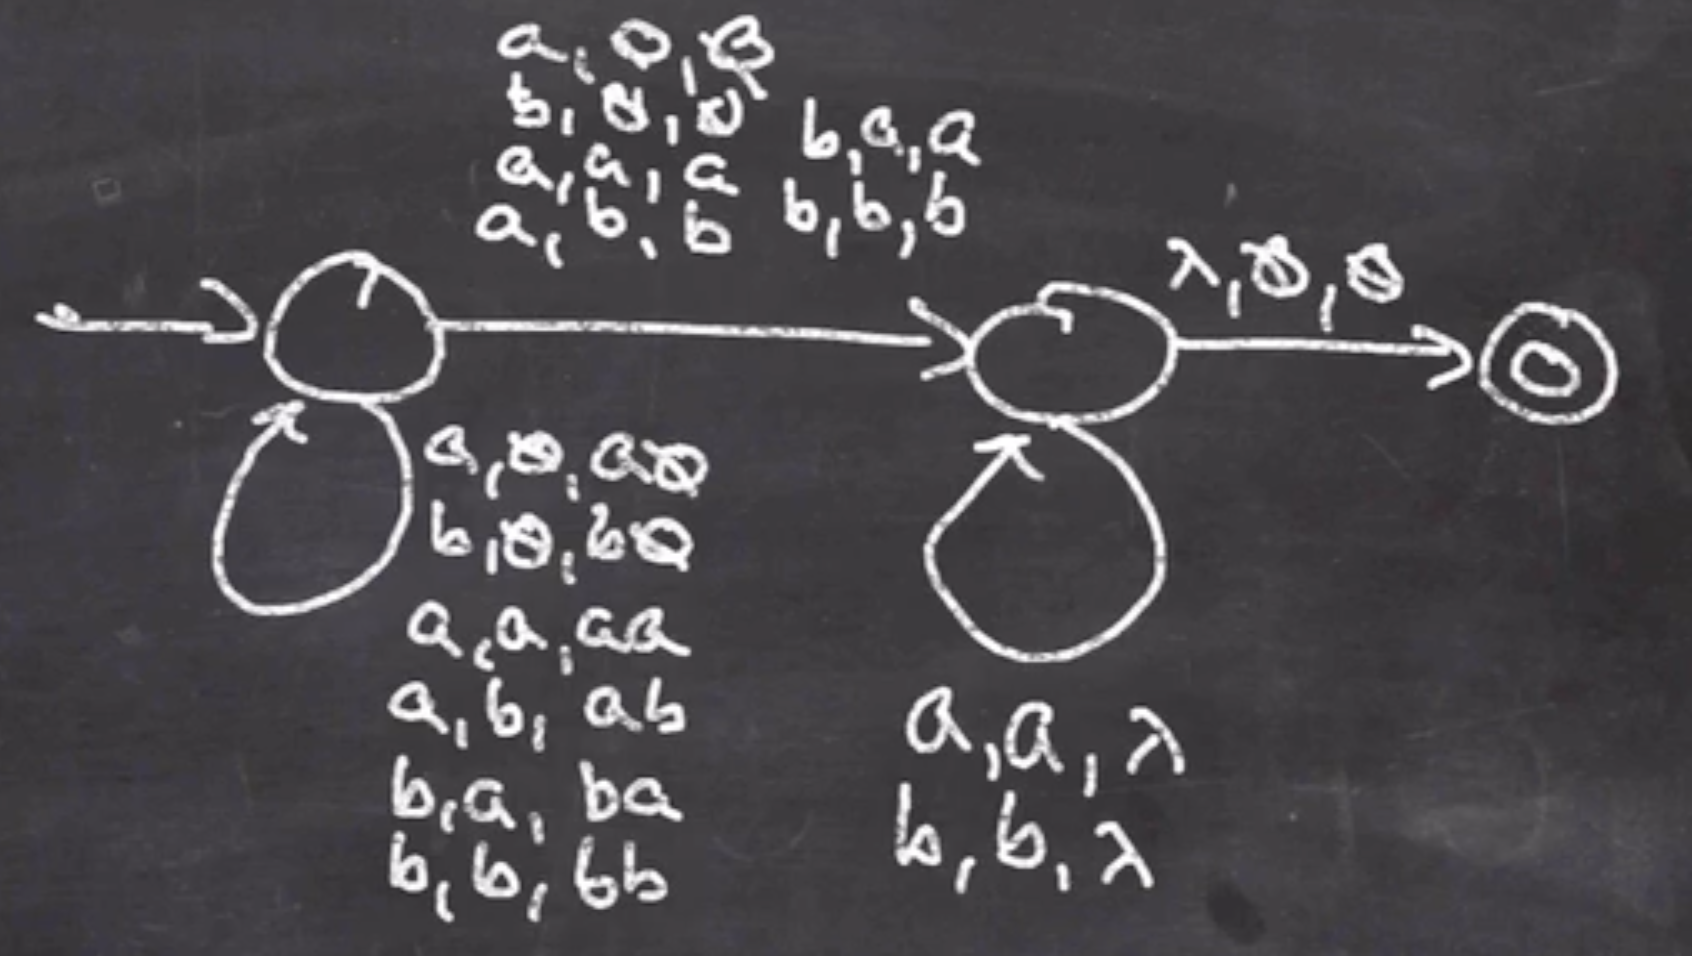 a, Ø, Ø
b, Ø, Ø
a, a, a
a, b, b
b, a, a
b, b, b
λ, Ø, Ø
a, Ø, aØ
b, Ø, bØ
a, a, aa
a, b, ab
b, a, ba
b, b, bb
a, a, λ
b, b, λ